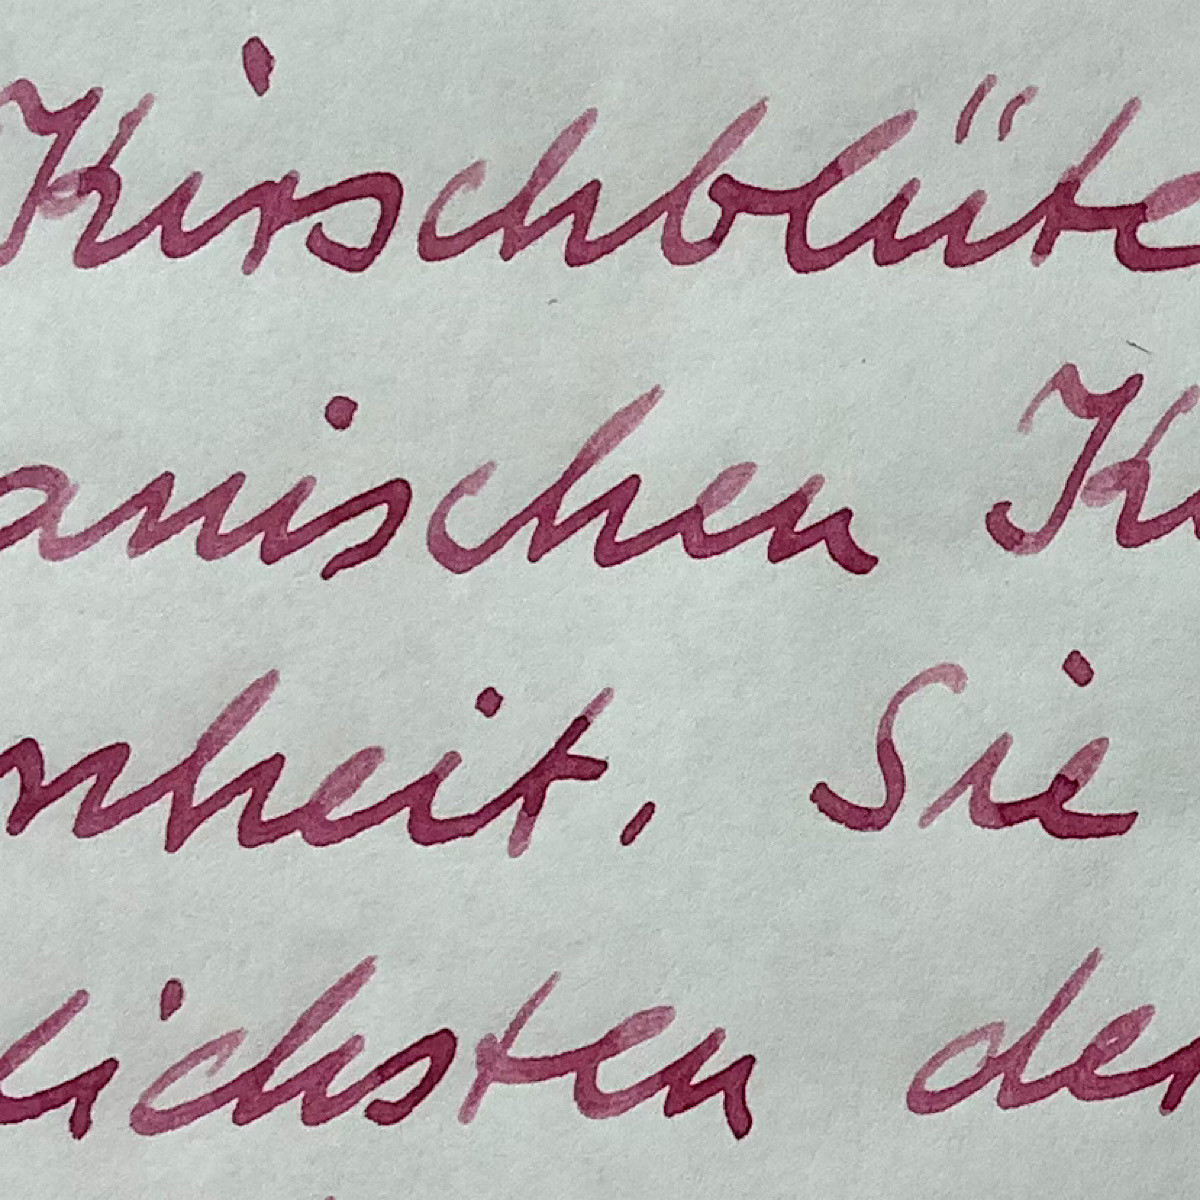 Kirschblüte
anischen K
nheit. Sie
lichsten der